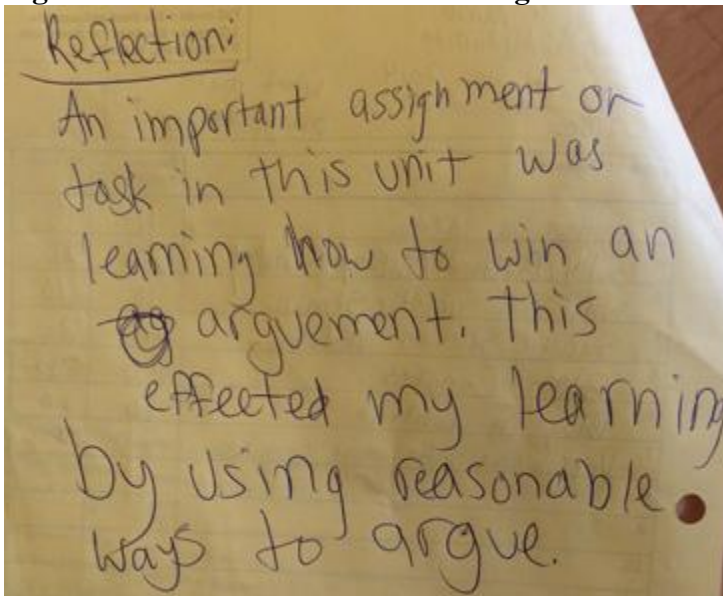 Reflection:
An important assignment or
task in this unit was
learning how to win an
arguement. This
effected my learning
by using reasonable
ways to argue.